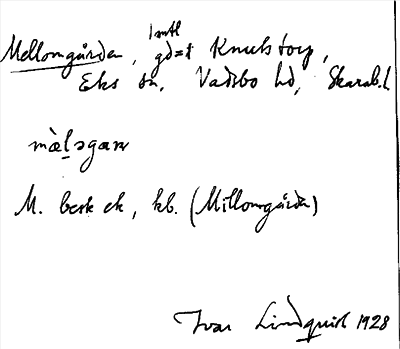 Mellomgården, 1 mtl gd=t Knutstorp,
Eks sn, Vadsbo hd, Skarab.l
mæ̀ḷəgaɴ
M. besk ek, kb. (Millomgården)
Ivar Lindquist 1928